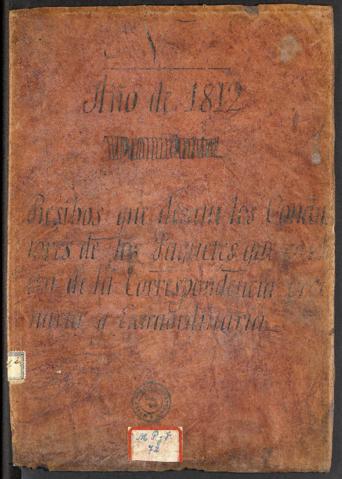 Año de 1812
Resibos que dejan los Conduc
tores de los Paquetes que
de la Correspondencia
naria y Extraordinaria
M. P. y F.
72